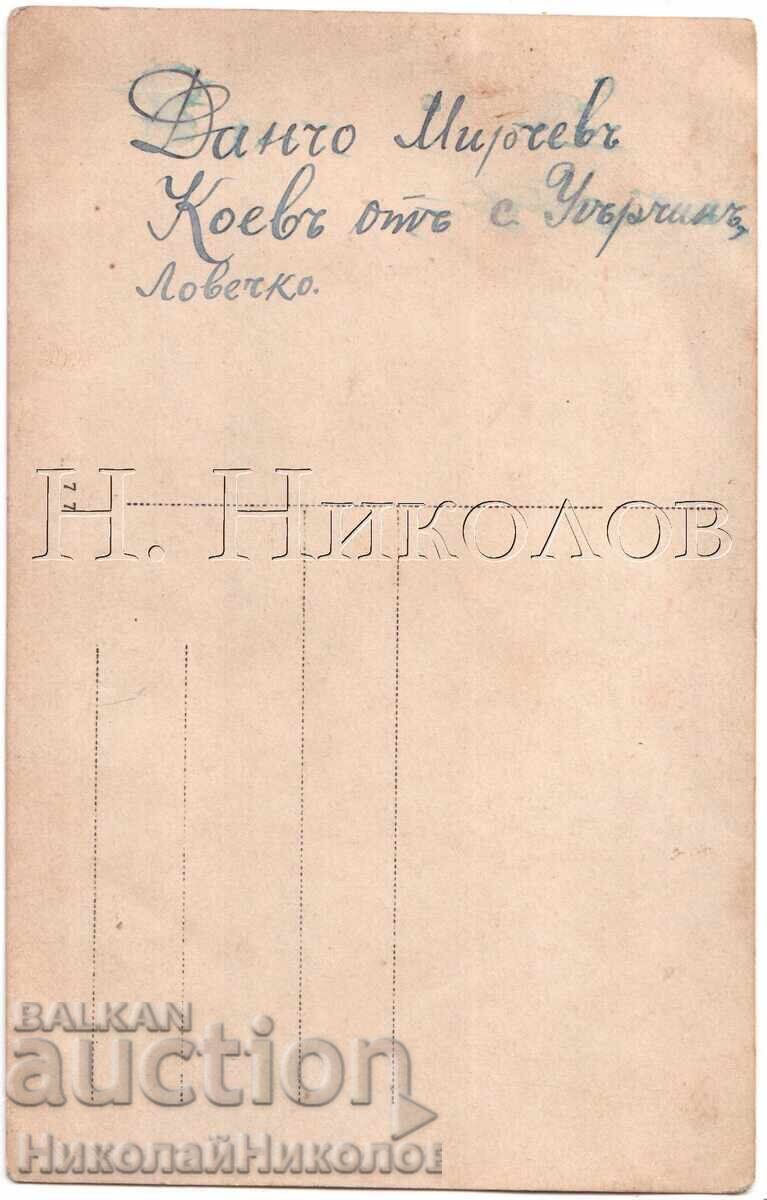 Данчо Мирчевъ
Коевъ отъ с. Угърчинъ,
Ловечко.
77
Н. Николов
BALKAN
auction
НиколайНиколов